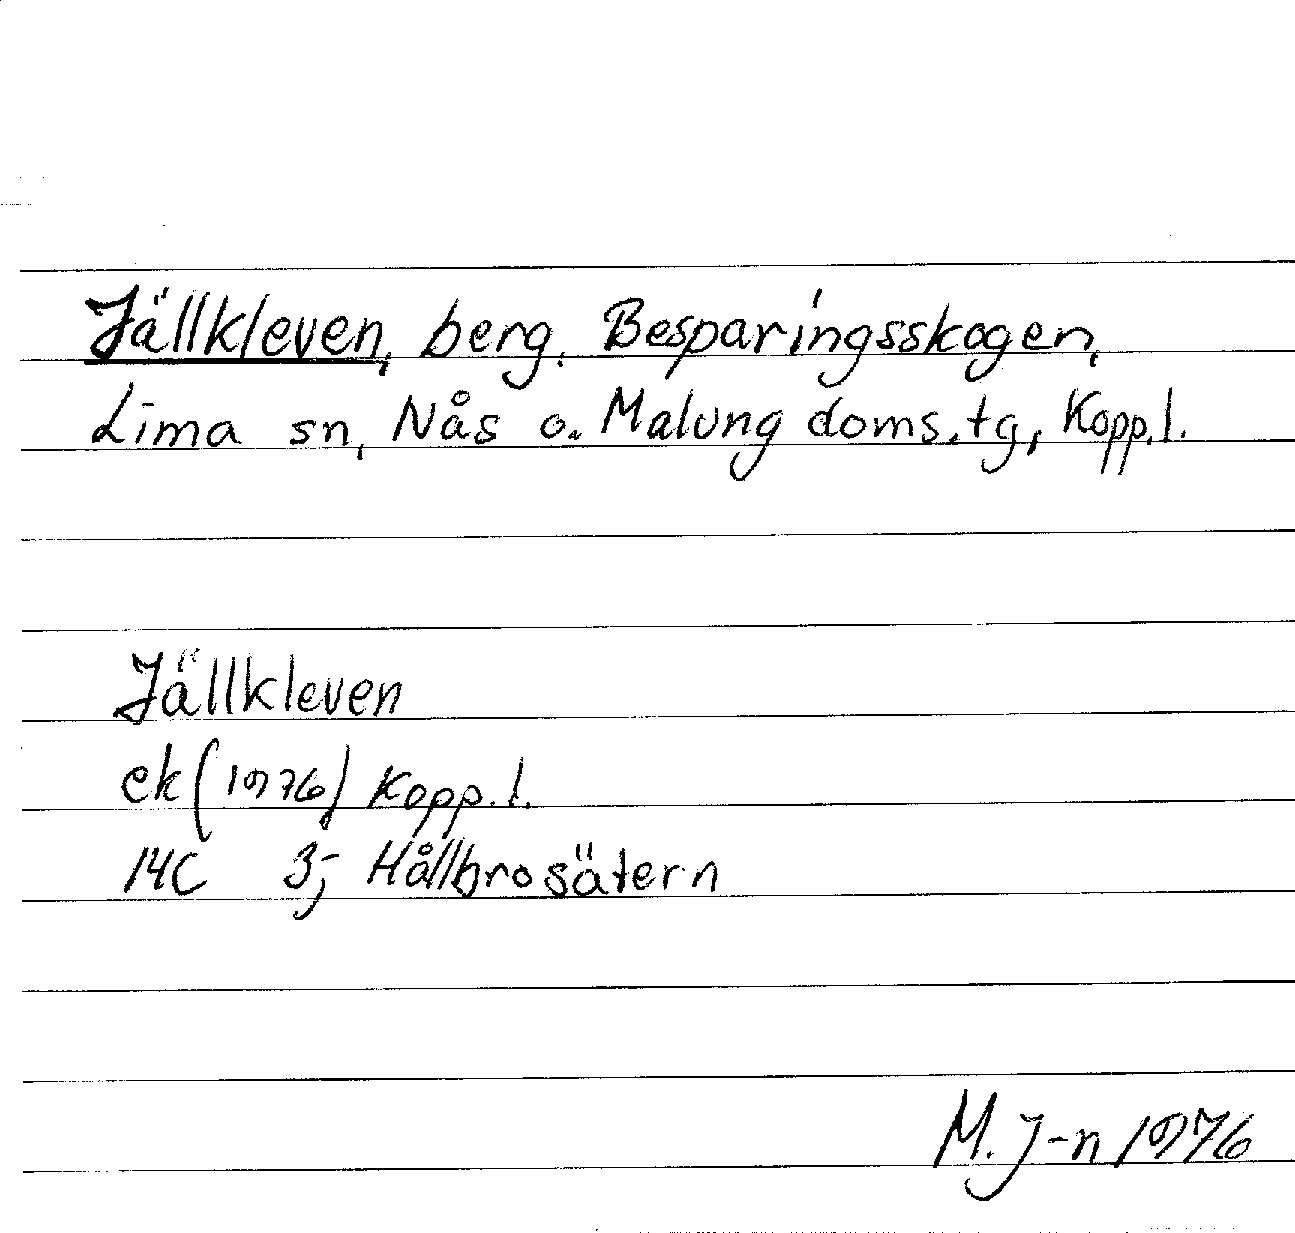 Jällkleven, berg, Besparingsskogen,
Lima sn, Nås o. Malung doms.tg, Kopp.l.
Jällkleven
ek (1976) Kopp.l.
14C 3j Hållbrosätern
M. J-n 1976